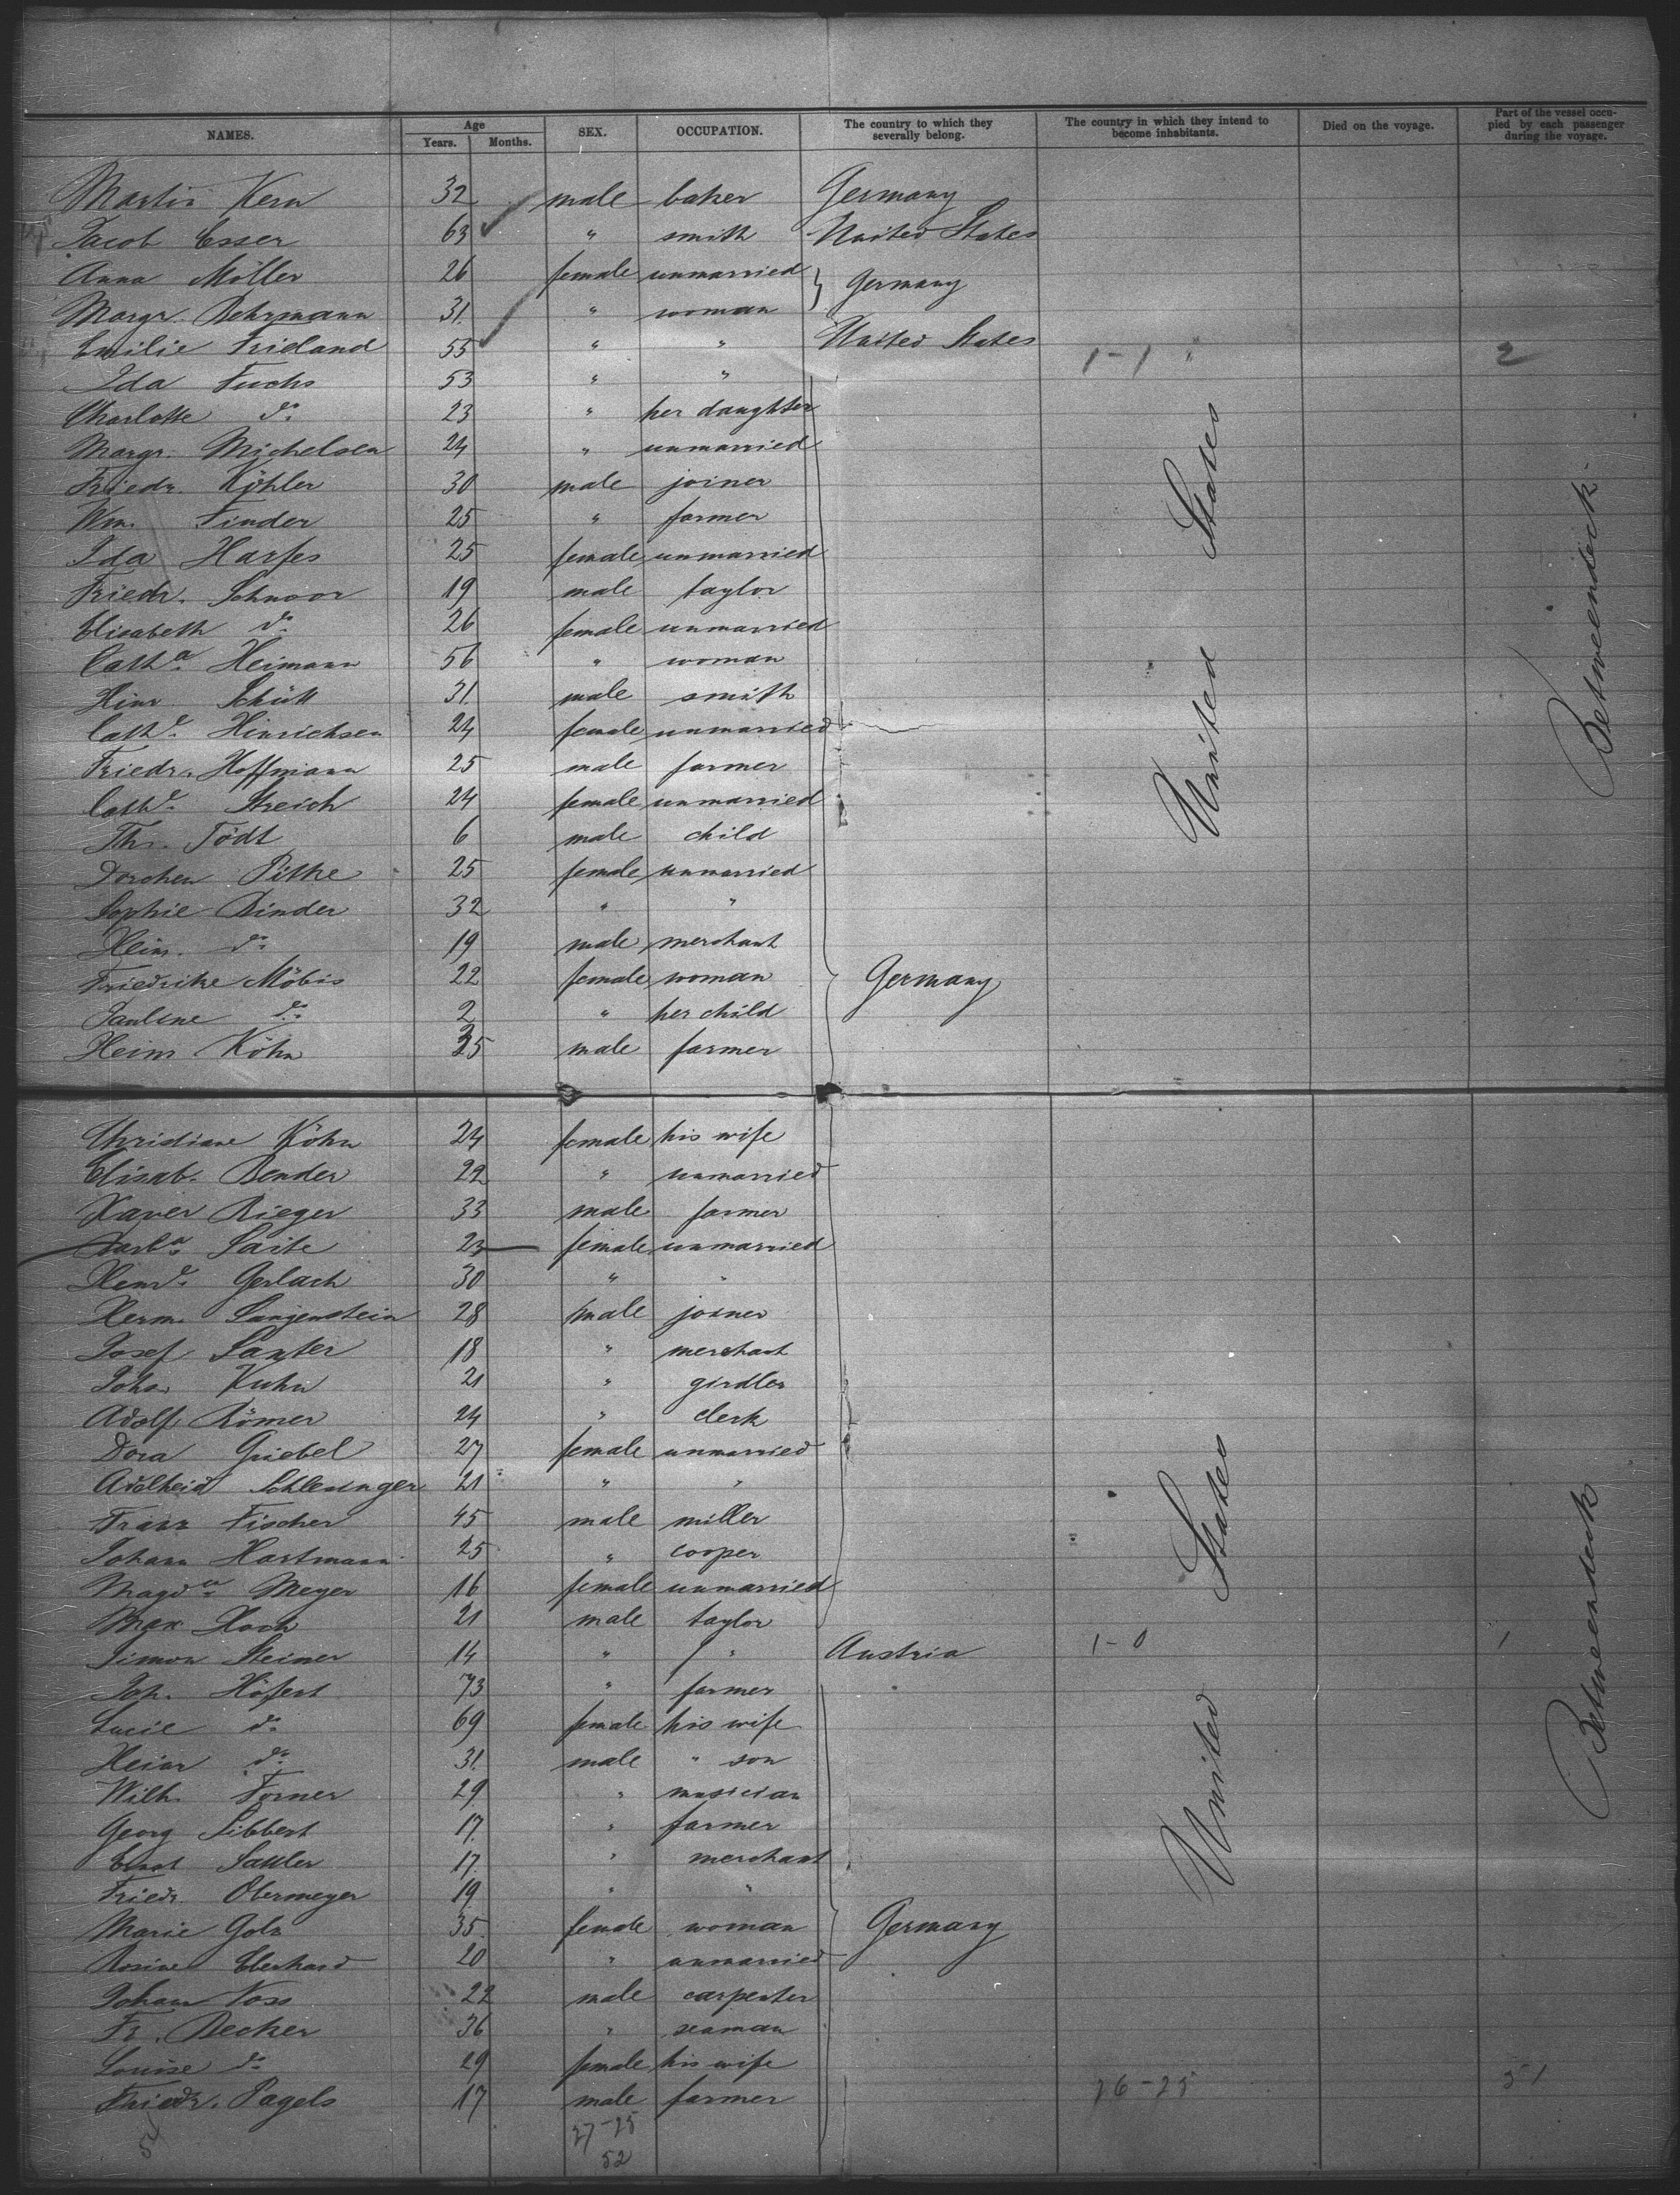 NAMES. Age Years. Months. SEX. OCCUPATION. The country to which they severally belong. The country in which they intend to become inhabitants. Died on the voyage. Part of the vessel occupied by each passenger during the voyage.
Martin Kern 32 male baker Germany
Jacob Esser 63 " smith United States
Anna Möller 26 female unmarried } Germany
Margr. Behrmann 31. " woman
Emilie Frieland 55 " " United States 1-1 2
Ida Fuchs 53 " "
Charlotte do. 23 " her daughter
Margr. Michelsen 24 " unmarried
Friedr. Köhler 30 male joiner
Wm. Finder 25 " farmer
Ida Harfes 25 female unmarried
Friedr. Schnoor 19 male taylor
Elisabeth do. 26 female unmarried
Catha. Heimann 56 " woman
Hinr. Schütt 31. male smith
Cathe. Hinrichsen 24 female unmarried
Friedr. Hoffmann 25 male farmer
Cathe. Streich 24 female unmarried
Th. Tödt 6 male child
Dorchen Pithe 25 female unmarried
Sophie Binder 32 " "
Hein. do. 19 male merchant
Friedrike Möbis 22 female woman Germany
Pauline do. 2 " her child
Heinr Köhn 35 male farmer
United States
Betweendeck.
Christiane Köhn 24 female his wife
Elisab. Bender 22 " unmarried
Xaver Rieger 33 male farmer
Barba. Saite 23 female unmarried
Henre. Gerlach 30 " "
Herm. Langenstein 28 male joiner
Josef Saxter 18 " merchant
Johs. Kuhn 21 " girdler
Adolf Römer 24 " clerk
Dora Griebel 27 female unmarried
Adelheid Schlesinger 21 " "
Franz Fischer 45 male miller
Johann Hartmann 25 " cooper
Magda. Meyer 16 female unmarried
Max Hoch 21 male taylor
Simon Steiner 14 " " Austria 1-0 1
Joh. Höfert 73 " farmer
Lucie do. 69 female his wife
Heinr do. 31. male " son
Wilh. Forner 29 " musician
Georg Sibbert 17. " farmer
Ernst Sattler 17. " merchant
Friedr. Obermeyer 19. " "
Marie Golz 35. female woman Germany
Rosine Eberhard 20 " unmarried
Johann Voss 22 male carpenter
Fr. Becker 36 " seaman
Louise do. 29 female his wife
Friedr. Pagels 17 male farmer 26-25 51
United States
Betweendeck
27-25
52
54